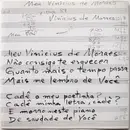 Meu Vinicius de Moraes
Meu Vinicius de Moraes
Não consigo te esquecer
Quanto mais o tempo passa
Mais me lembro de Você
Cadê o meu poetinha?
Cadê minha letra, cadê?
E morro neste piano
De saudade de Você